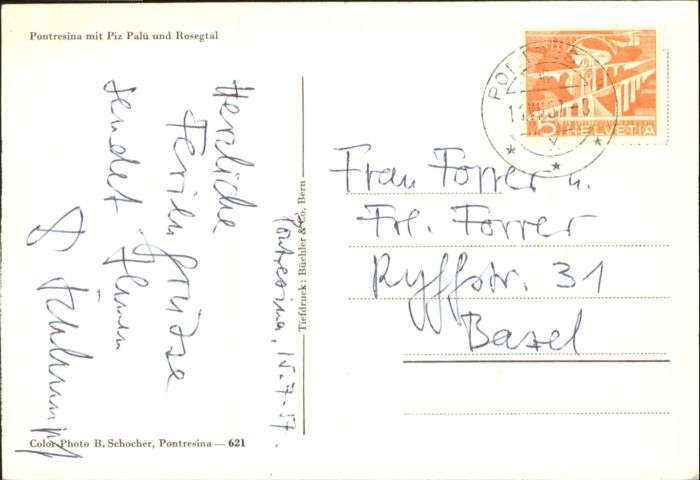 Pontresina mit Piz Palü und Rosegtal
HELVETIA
5
Pontresina, 15-7-57.
Herzliche
Feriengrüsse
sendet Ihnen
Tiefdruck: Büchler & Co. Bern
Frau Forrer u.
Frl. Forrer
Ryffstr. 31
Basel
Color-Photo B. Schocher, Pontresina — 621